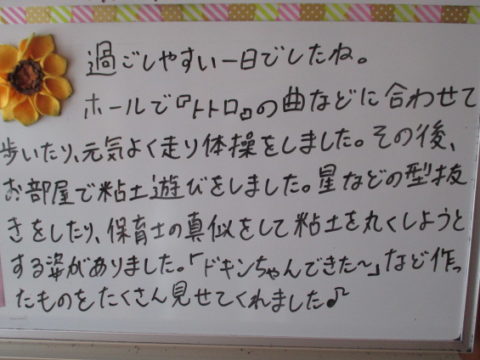 過ごしやすい一日でしたね。
ホールで『トトロ』の曲などに合わせて
歩いたり、元気よく走り体操をしました。その後、
お部屋で粘土遊びをしました。星などの型抜
きをしたり、保育士の真似をして粘土を丸くしようと
する姿がありました。「ドキンちゃんできた〜」など作っ
たものをたくさん見せてくれました♪